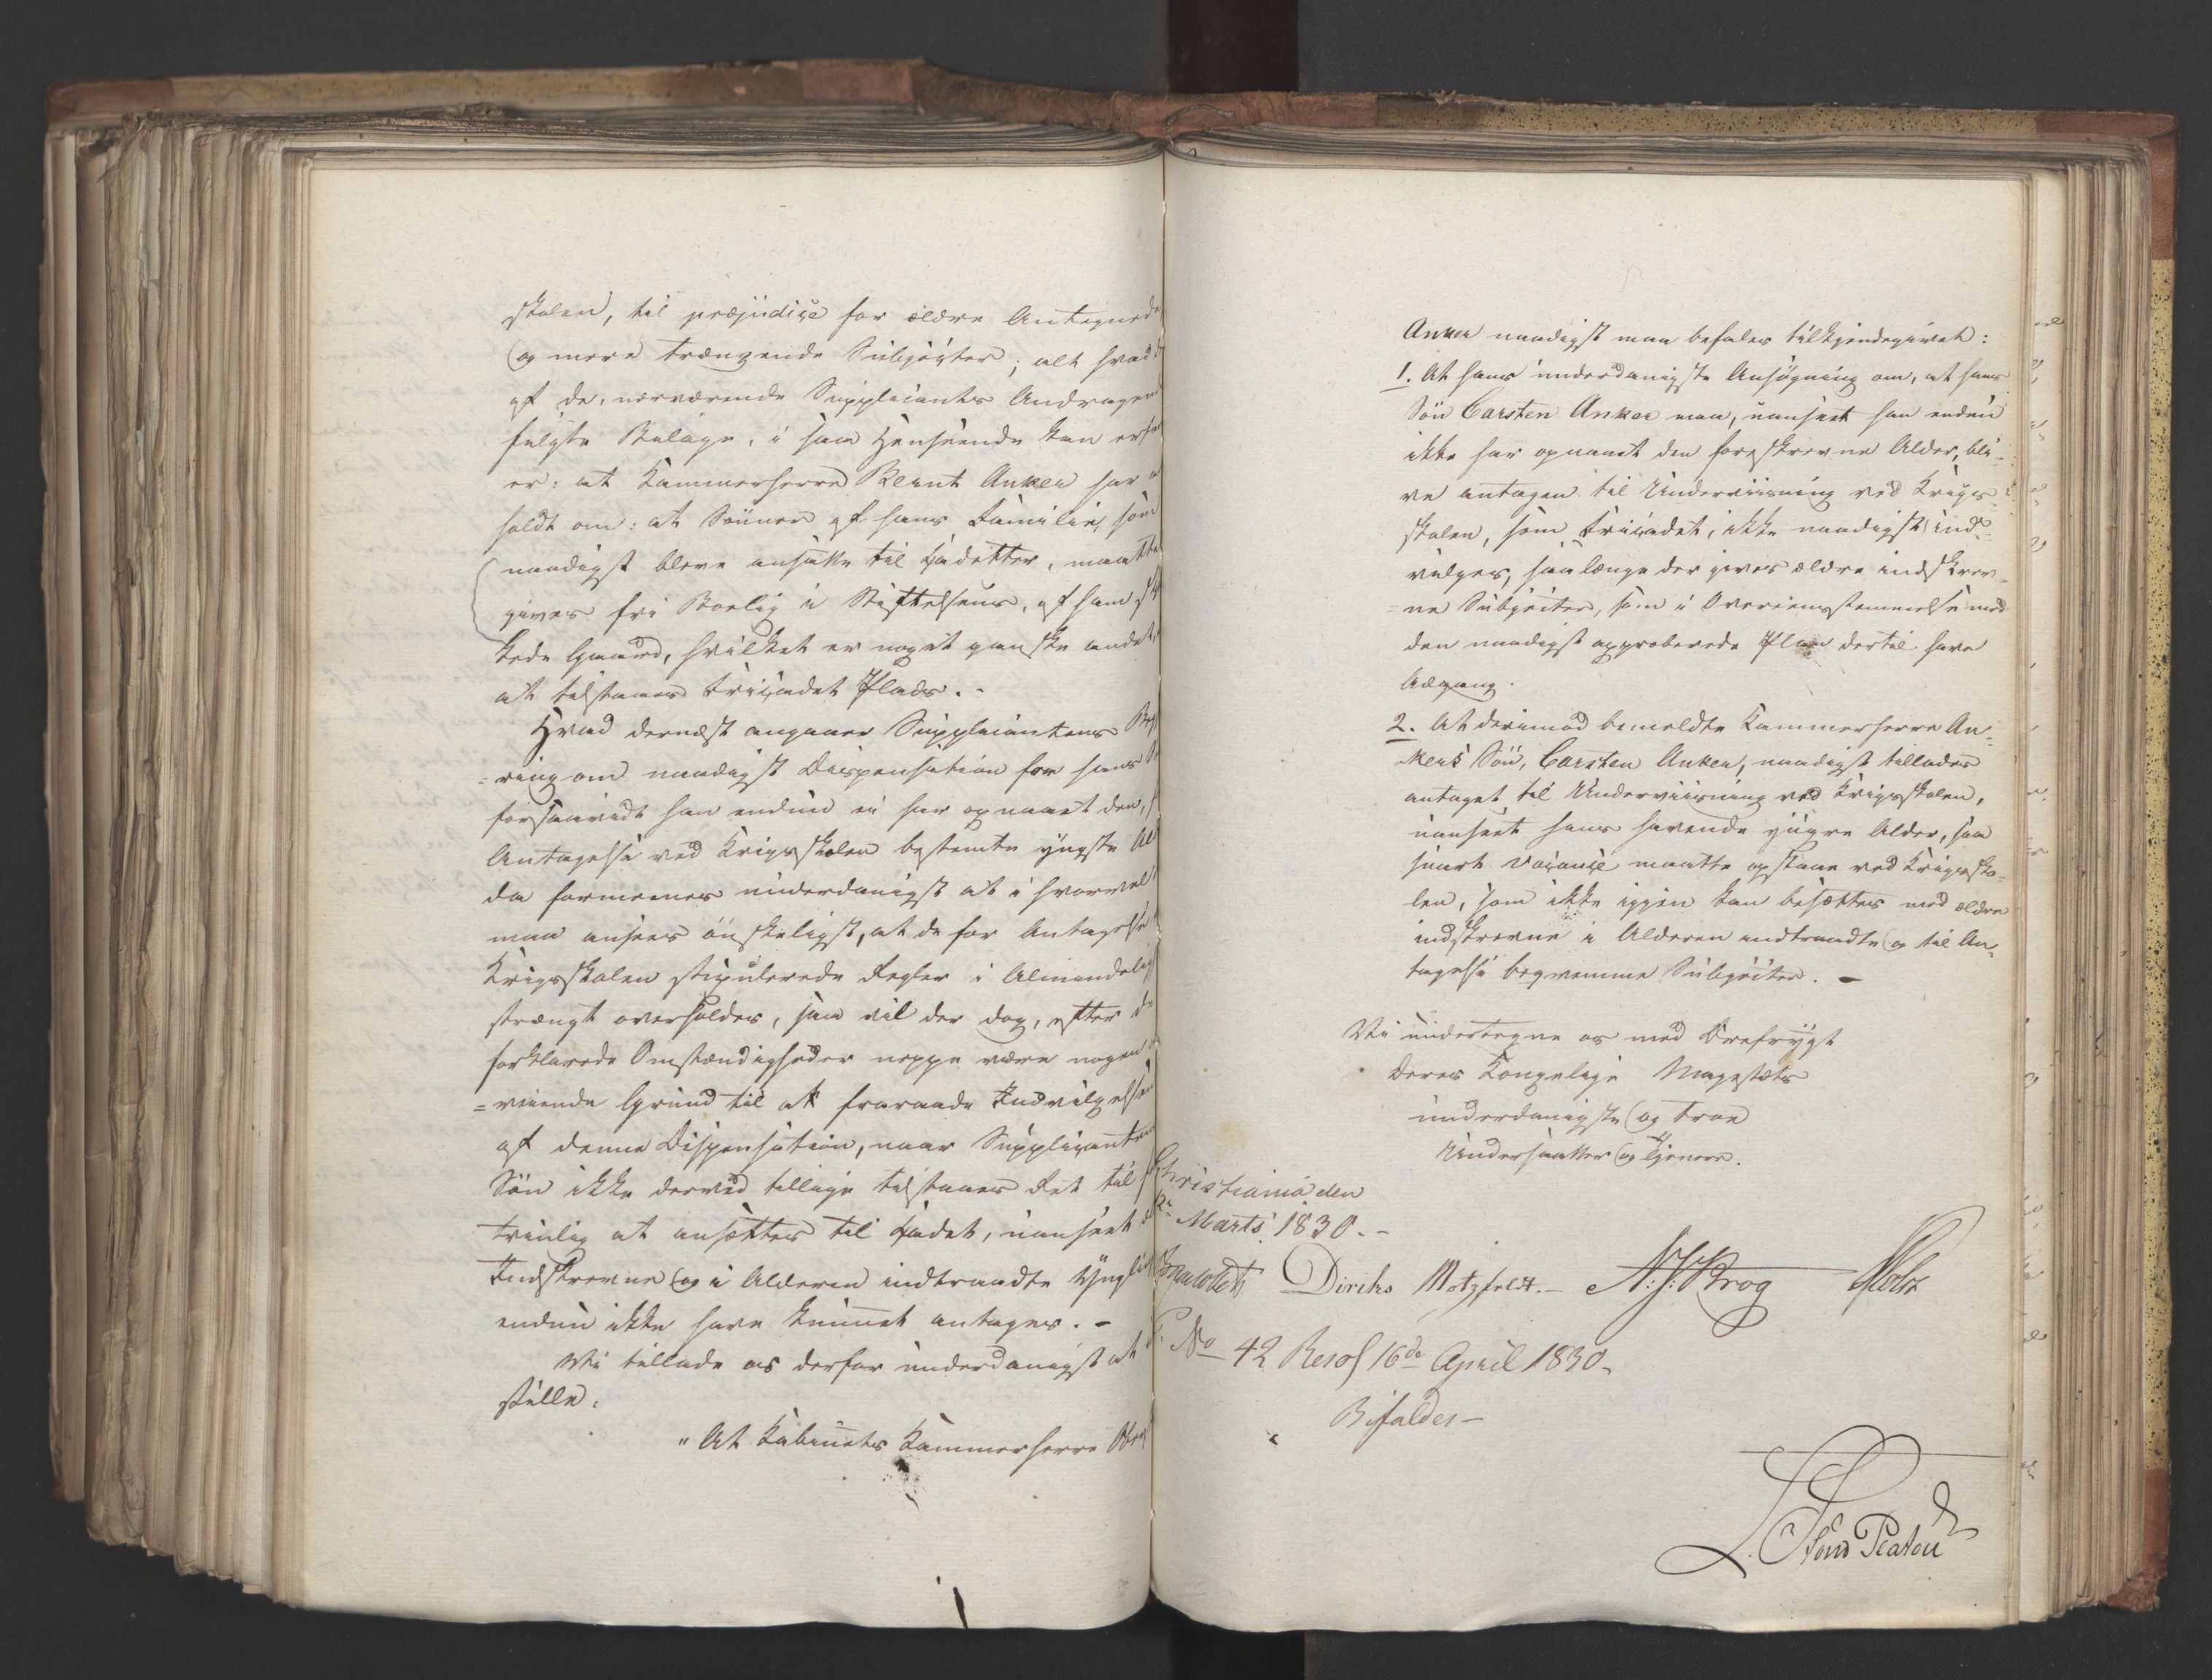 skolen, til præjudice for ældre Antegnede
og mere trængende Subjecter; alt hvad d
af de, nærværende Supplicants Andragen
fulgte Bilage, i saa Henseende kan erfar
er: at Kammerherre Bernt Anker har
holdt om: at Sönner af hans Familie, som
naadigst bleve ansatte til Cadetter, maatte
gives fri Bolig i Stiftelsens, af ham
kede Gaard, hvilket er noget ganske andet,
at tilstaaes Fricadet Plads. -
Hvad dernæst angaaer Supplicantens Beg
=ring om naadigst Dispensation for hans
forsaavidt han endnu ei har opnaaet den,
Antagelse ved Krigsskolen bestemte yngste Al
da formenes underdanigst at i hvorvel
maa ansees önskeligst, at de for Antagelse
Krigsskolen stipulerede Regler i Almindelig
strængt overholdes, saa vil der dog, efter de
forklarede Omstændigheder neppe være nogen
=veiende Grund til at fraraade Indvilgelsen
af denne Dispensation, naar Supplicanten
Sön ikke derved tillige tilstaaes Ret til
trinlig at ansættes til Cadet, uanseet
Indskrevne og i Alderen indtraadte Yngli
endnu ikke have kunnet antages. -
Vi tillade os derfor underdanigst at
stille:
"At Kabinets Kammerherre
Anker naadigst maa befales tilkjendegivet:
1. At hans underdanigste Ansögning om, at hans
Sön Carsten Anker maa, uanseet han endnu
ikke har opnaaet den foreskrevne Alder, bli-
ve antagen til Underviisning ved Krigs
skolen, som Fricadet, ikke naadigst ind-
vilges, saalænge der gives ældre indskrev-
=ne Subjecter, som i Overeensstemmelse med
den naadigst approberede Plan dertil have
Adgang.
2. At derimod bemeldte Kammerherre An-
kers Sön, Carsten Anker, naadigst tillades
antaget til Underviisning ved Krigsskolen,
uanseet hans havende yngre Alder, saa
snart Vacance maatte opstaae ved Krigssko-
len, som ikke igjen kan besættes med ældre
indskrevne i Alderen indtraadte og til An-
tagelse beqvemme Subjecter. -
Vi undertegne os med Ærefrygt
Deres Kongelige Majestæts
underdanigste og troe
Undersaatter og Tjenere.
Christiania den
Marts 1830. -
Diriks Motzfeldt. - N. J. Krog Holst
No 42 Resol 16de April 1830.
Bifaldes -